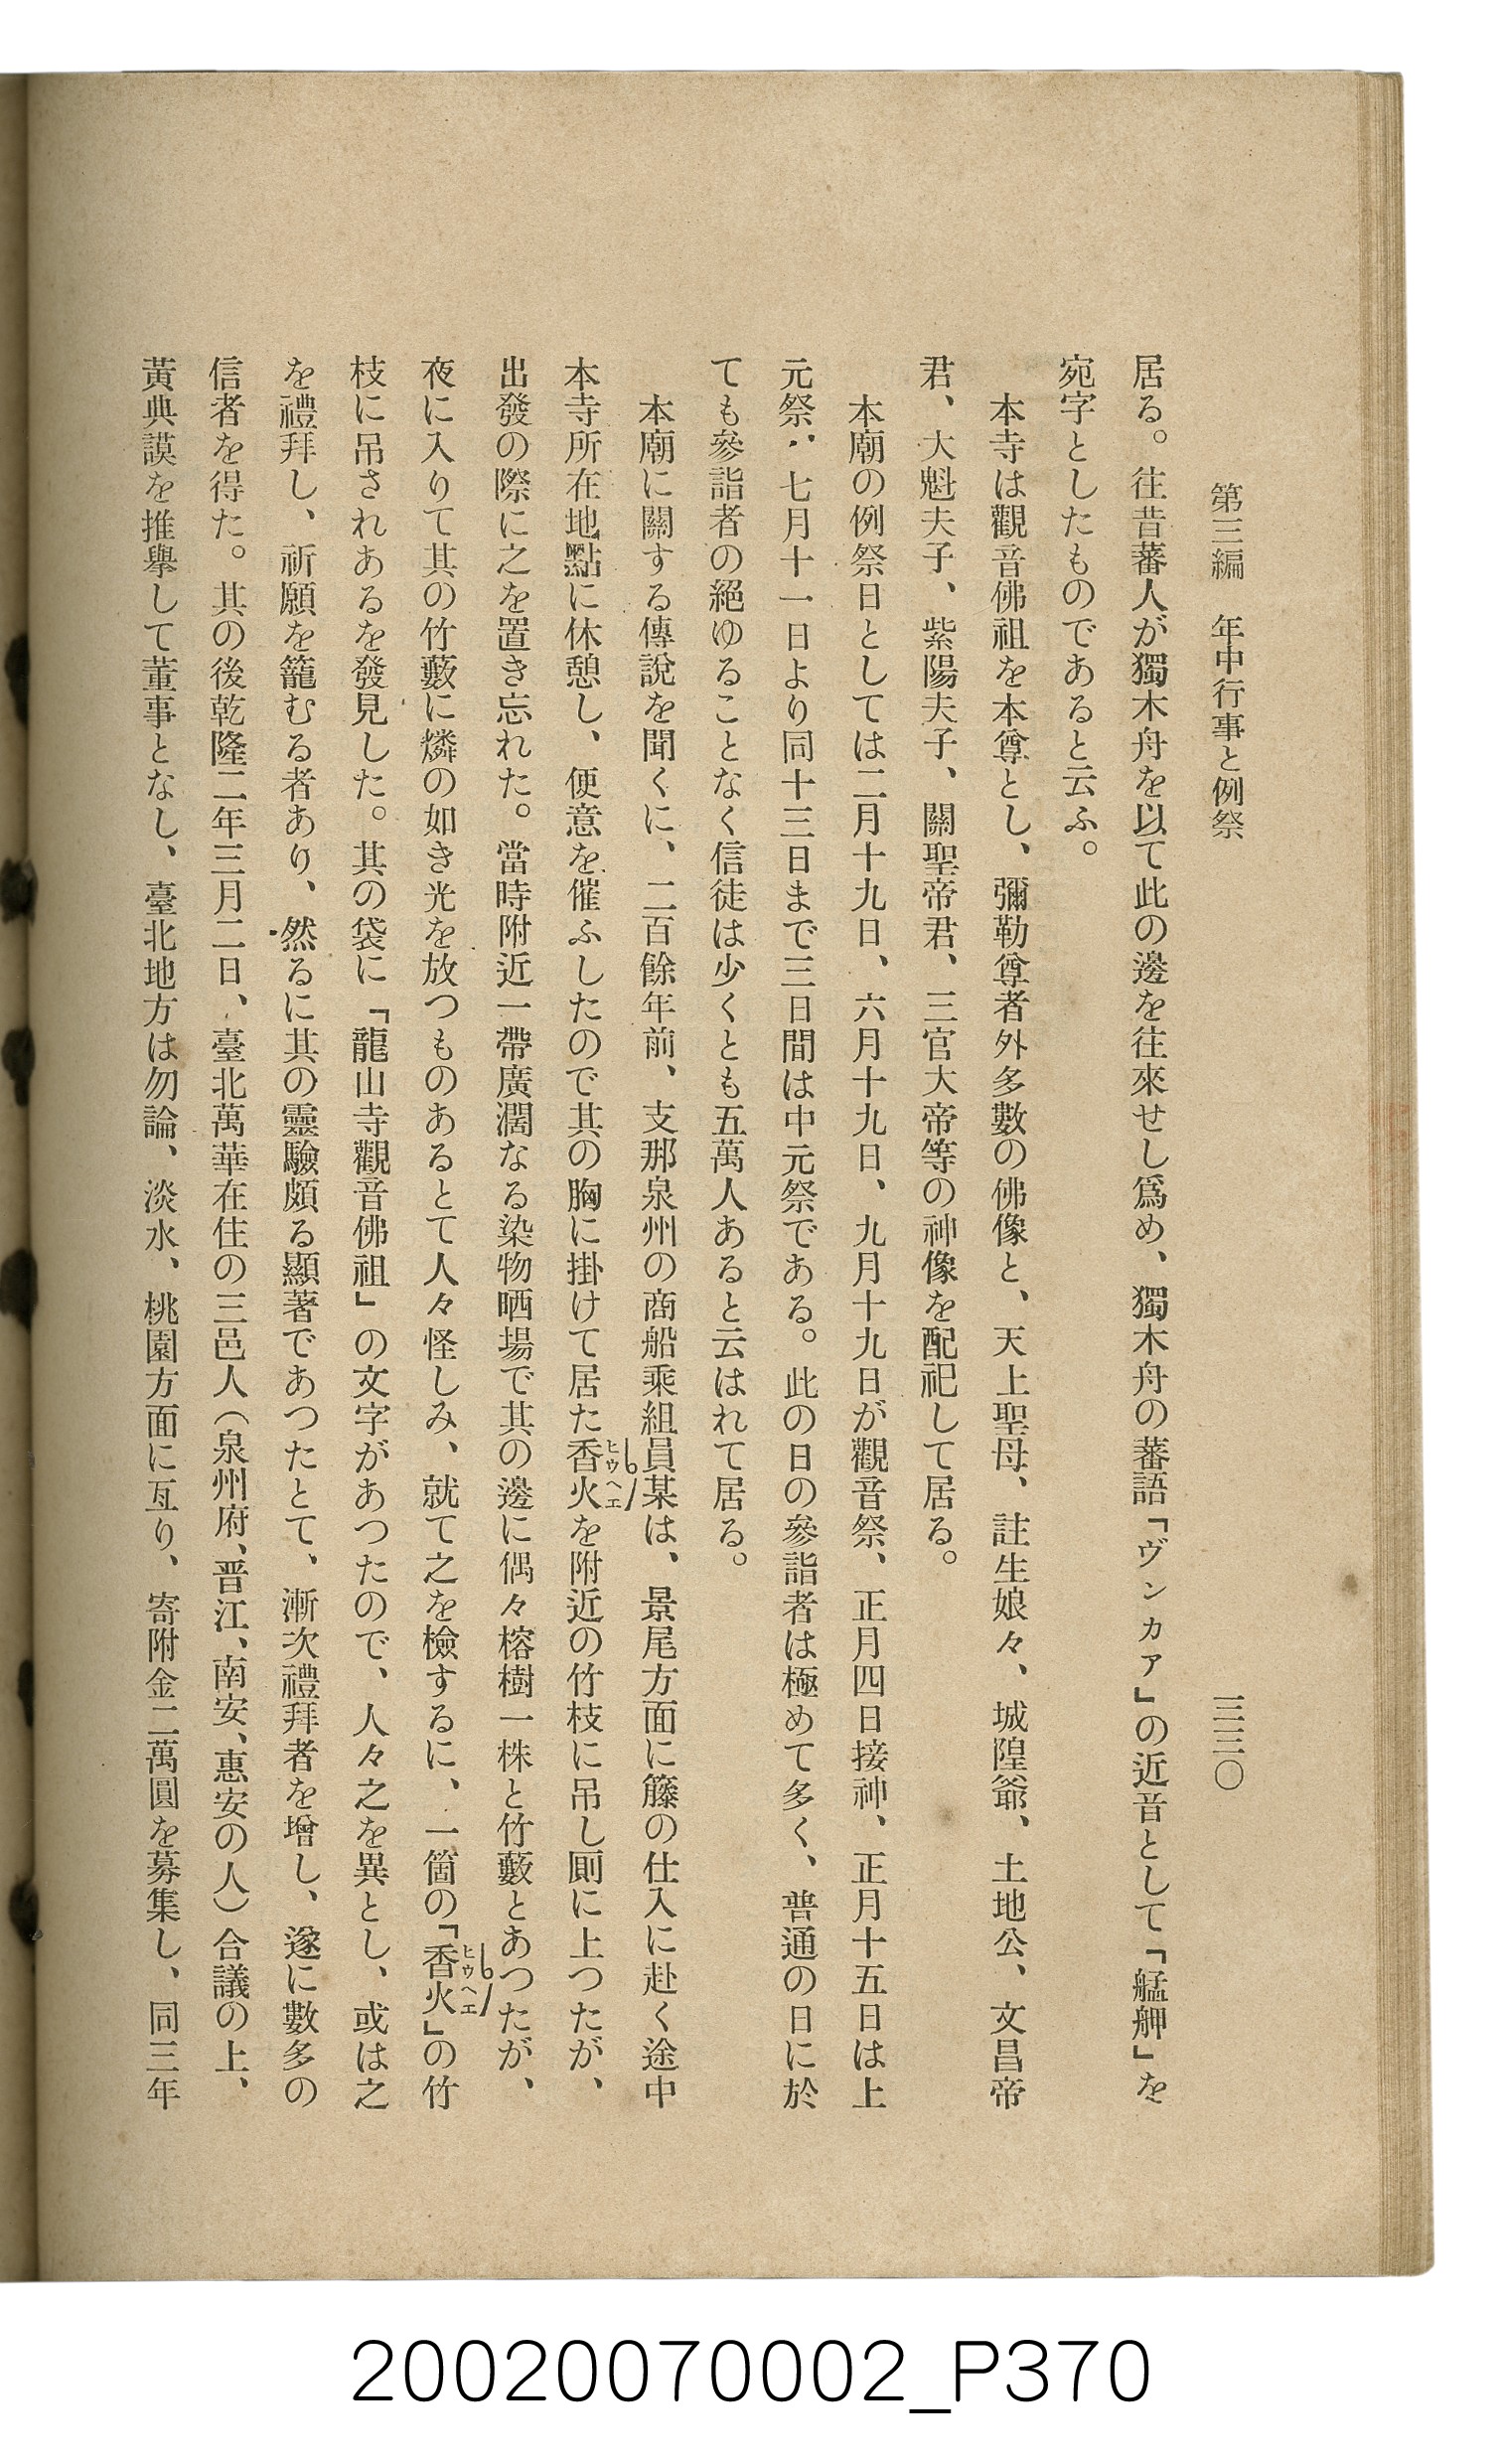 第三編　年中行事と例祭　三三〇
居る。往昔蕃人が獨木舟を以て此の邊を往來せし爲め、獨木舟の蕃語「ヴンカァ」の近音として「艋舺」を
宛字としたものであると云ふ。
本寺は觀音佛祖を本尊とし、彌勒尊者外多數の佛像と、天上聖母、註生娘々、城隍爺、土地公、文昌帝
君、大魁夫子、紫陽夫子、關聖帝君、三官大帝等の神像を配祀して居る。
本廟の例祭日としては二月十九日、六月十九日、九月十九日が觀音祭、正月四日接神、正月十五日は上
元祭、七月十一日より同十三日まで三日間は中元祭である。此の日の參詣者は極めて多く、普通の日に於
ても參詣者の絕ゆることなく信徒は少くとも五萬人あると云はれて居る。
本廟に關する傳說を聞くに、二百餘年前、支那泉州の商船乘組員某は、景尾方面に籐の仕入に赴く途中
本寺所在地點に休憩し、便意を催ふしたので其の胸に掛けて居た香火ヒウヘエを附近の竹枝に吊し厠に上つたが、
出發の際に之を置き忘れた。當時附近一帶廣濶なる染物晒場で其の邊に偶々榕樹一株と竹藪とあつたが、
夜に入りて其の竹藪に燐の如き光を放つものあるとて人々怪しみ、就て之を檢するに、一箇の「香火ヒウヘエ」の竹
枝に吊されあるを發見した。其の袋に「龍山寺觀音佛祖」の文字があつたので、人々之を異とし、或は之
を禮拜し、祈願を籠むる者あり、然るに其の靈驗頗る顯著であつたとて、漸次禮拜者を增し、遂に數多の
信者を得た。其の後乾隆二年三月二日、臺北萬華在住の三邑人（泉州府、晋江、南安、惠安の人）合議の上、
黃典謨を推擧して董事となし、臺北地方は勿論、淡水、桃園方面に亙り、寄附金二萬圓を募集し、同三年
20020070002_P370